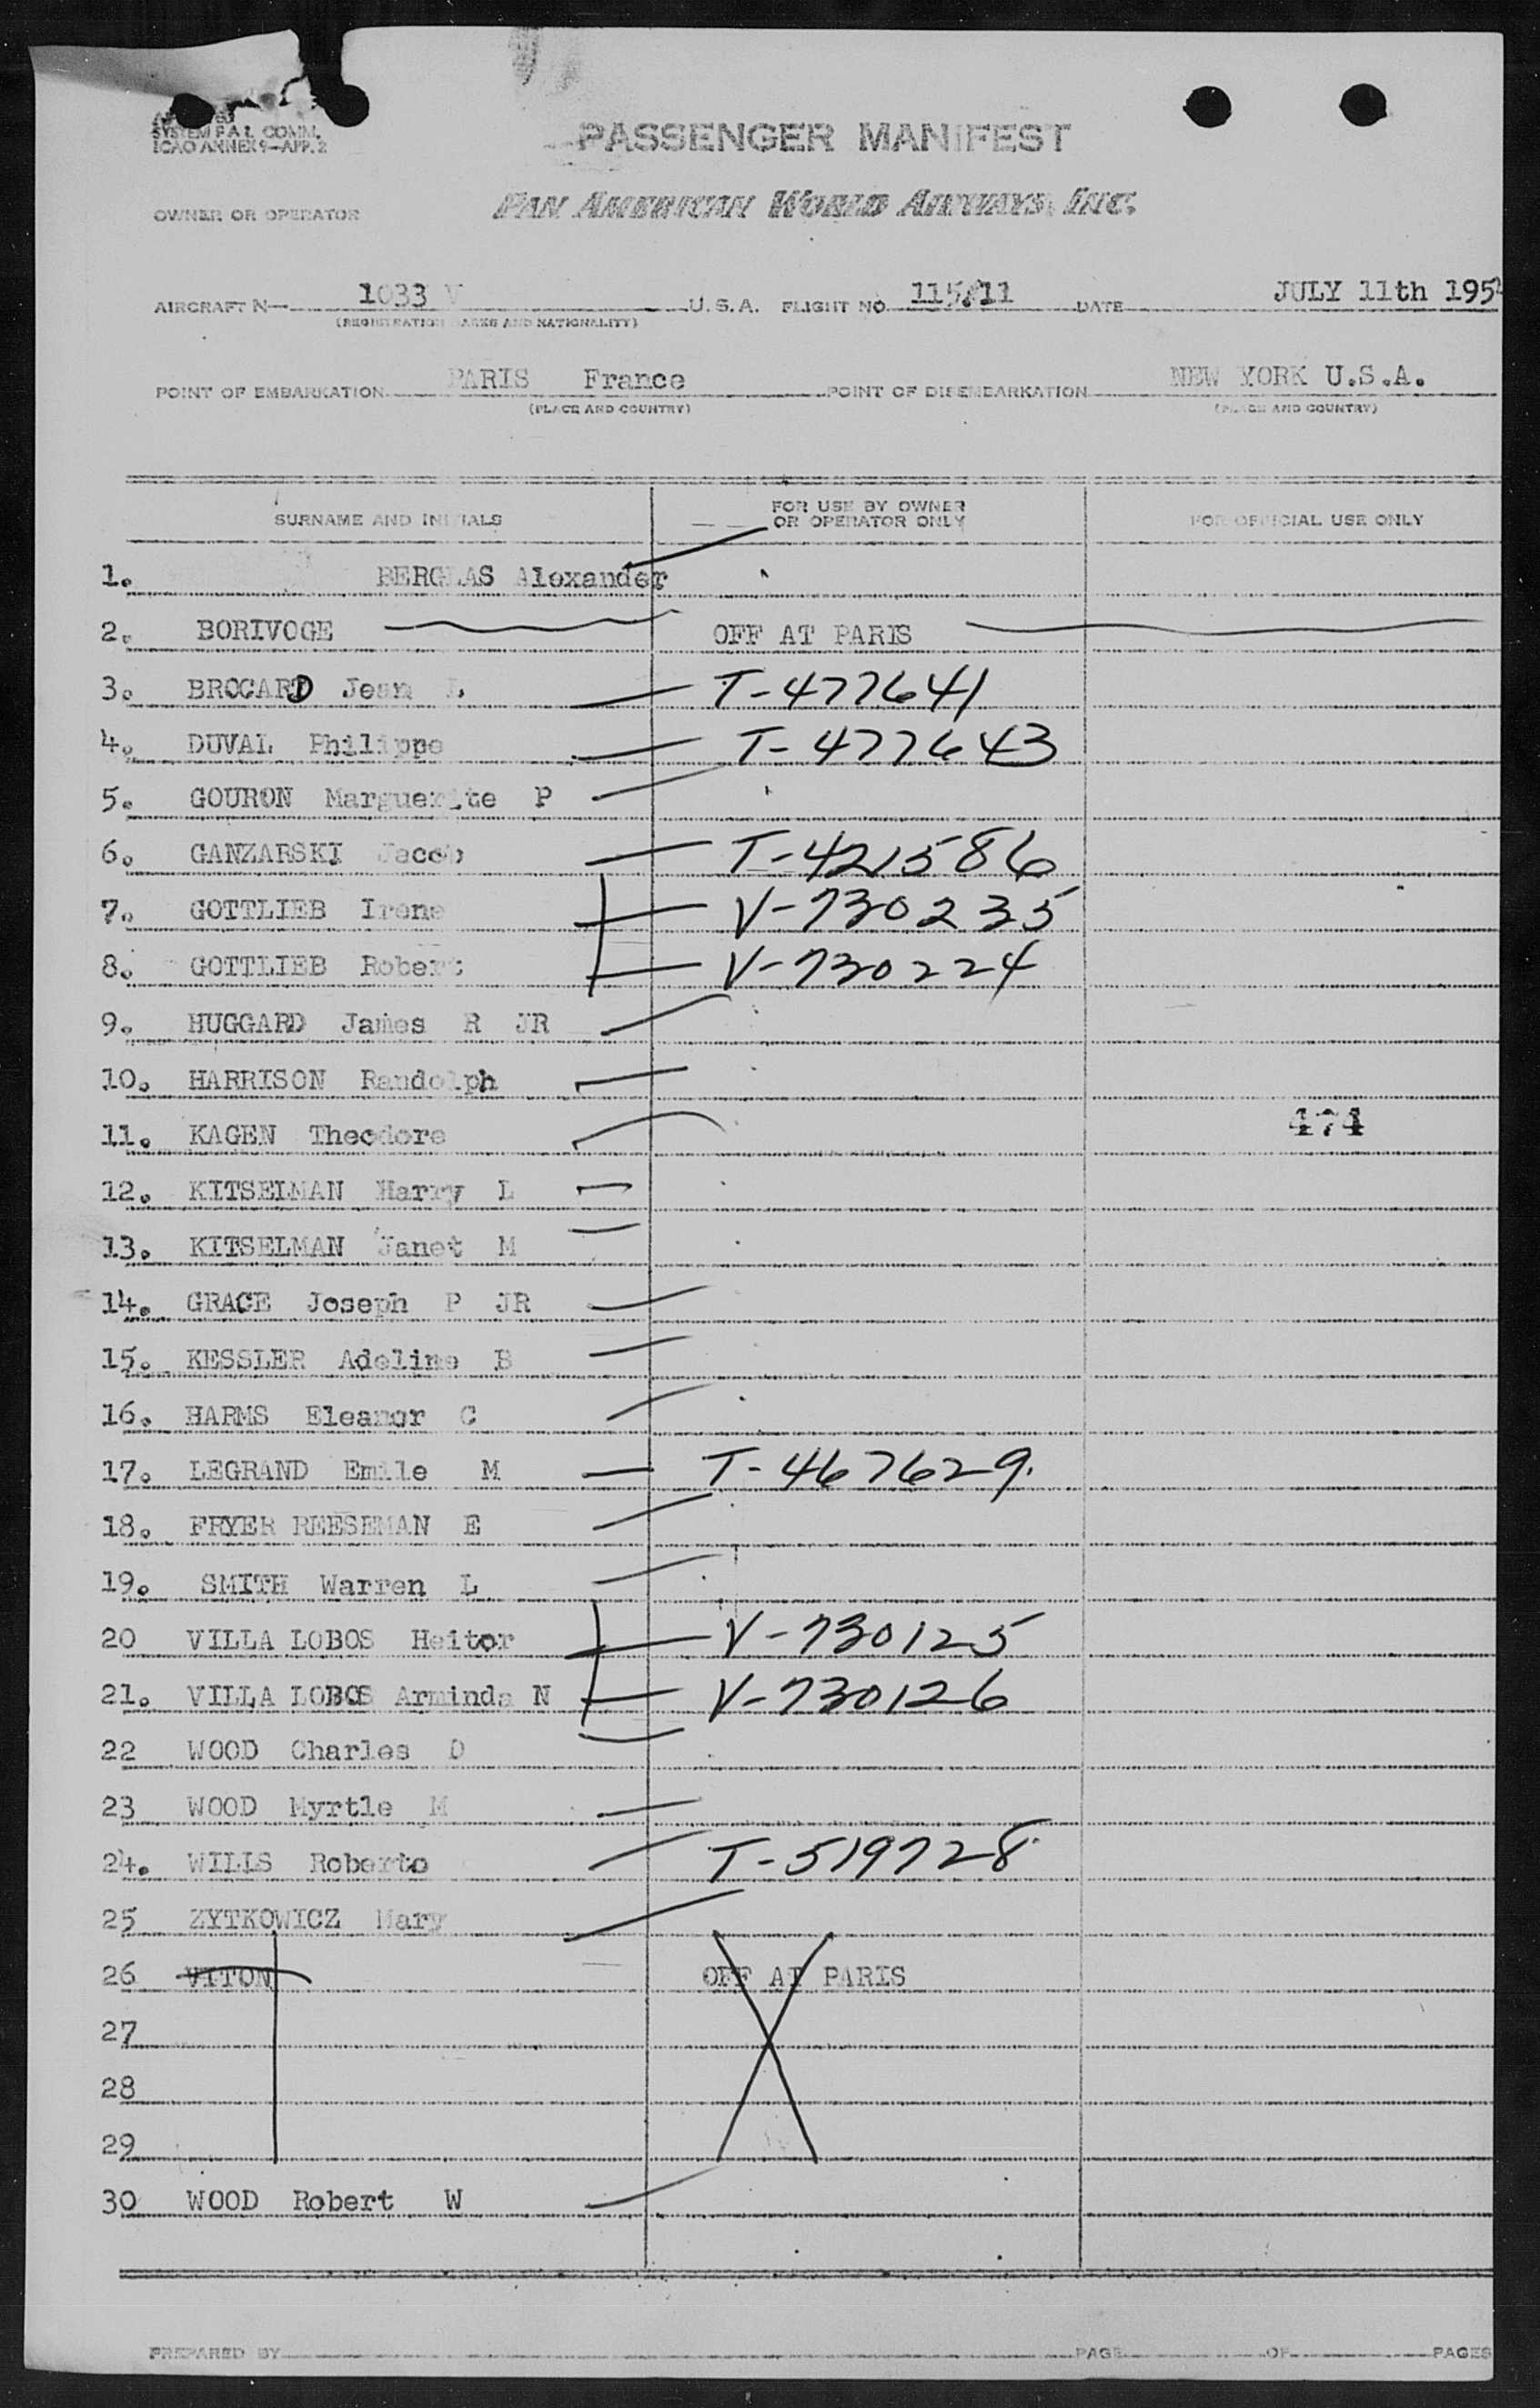 SYSTEM P.A.I. COMM.
ICAO ANNEX 9—APP. 2
PASSENGER MANIFEST
OWNER OR OPERATOR PAN AMERICAN WORLD AIRWAYS, INC.
AIRCRAFT N— 1033 V U.S.A. FLIGHT NO 115/11 DATE JULY 11th 195
(REGISTRATION MARKS AND NATIONALITY)
POINT OF EMBARKATION PARIS France POINT OF DISEMBARKATION NEW YORK U.S.A.
(PLACE AND COUNTRY) (PLACE AND COUNTRY)
SURNAME AND INITIALS FOR USE BY OWNER OR OPERATOR ONLY FOR OFFICIAL USE ONLY
1. BERGLAS Alexander
2. BORIVOGE OFF AT PARIS
3. BROCARD Jean L T-477641
4. DUVAL Philippe T-477643
5. GOURON Marguerite P
6. GANZARSKI Jacob T-421586
7. GOTTLIEB Irene V-730235
8. GOTTLIEB Robert V-730224
9. HUGGARD James R JR
10. HARRISON Randolph
11. KAGEN Theodore 474
12. KITSELMAN Harry L
13. KITSELMAN Janet M
14. GRACE Joseph P JR
15. KESSLER Adeline B
16. HARMS Eleanor C
17. LEGRAND Emile M T-467629.
18. FRYER REESEMAN E
19. SMITH Warren L
20 VILLA LOBOS Heitor V-730125
21. VILLA LOBOS Arminda N V-730126
22 WOOD Charles D
23 WOOD Myrtle M
24. WILLS Roberto T-519728
25 ZYTKOWICZ Mary
26 VITON OFF AT PARIS
27
28
29
30 WOOD Robert W
PREPARED BY PAGE OF PAGES